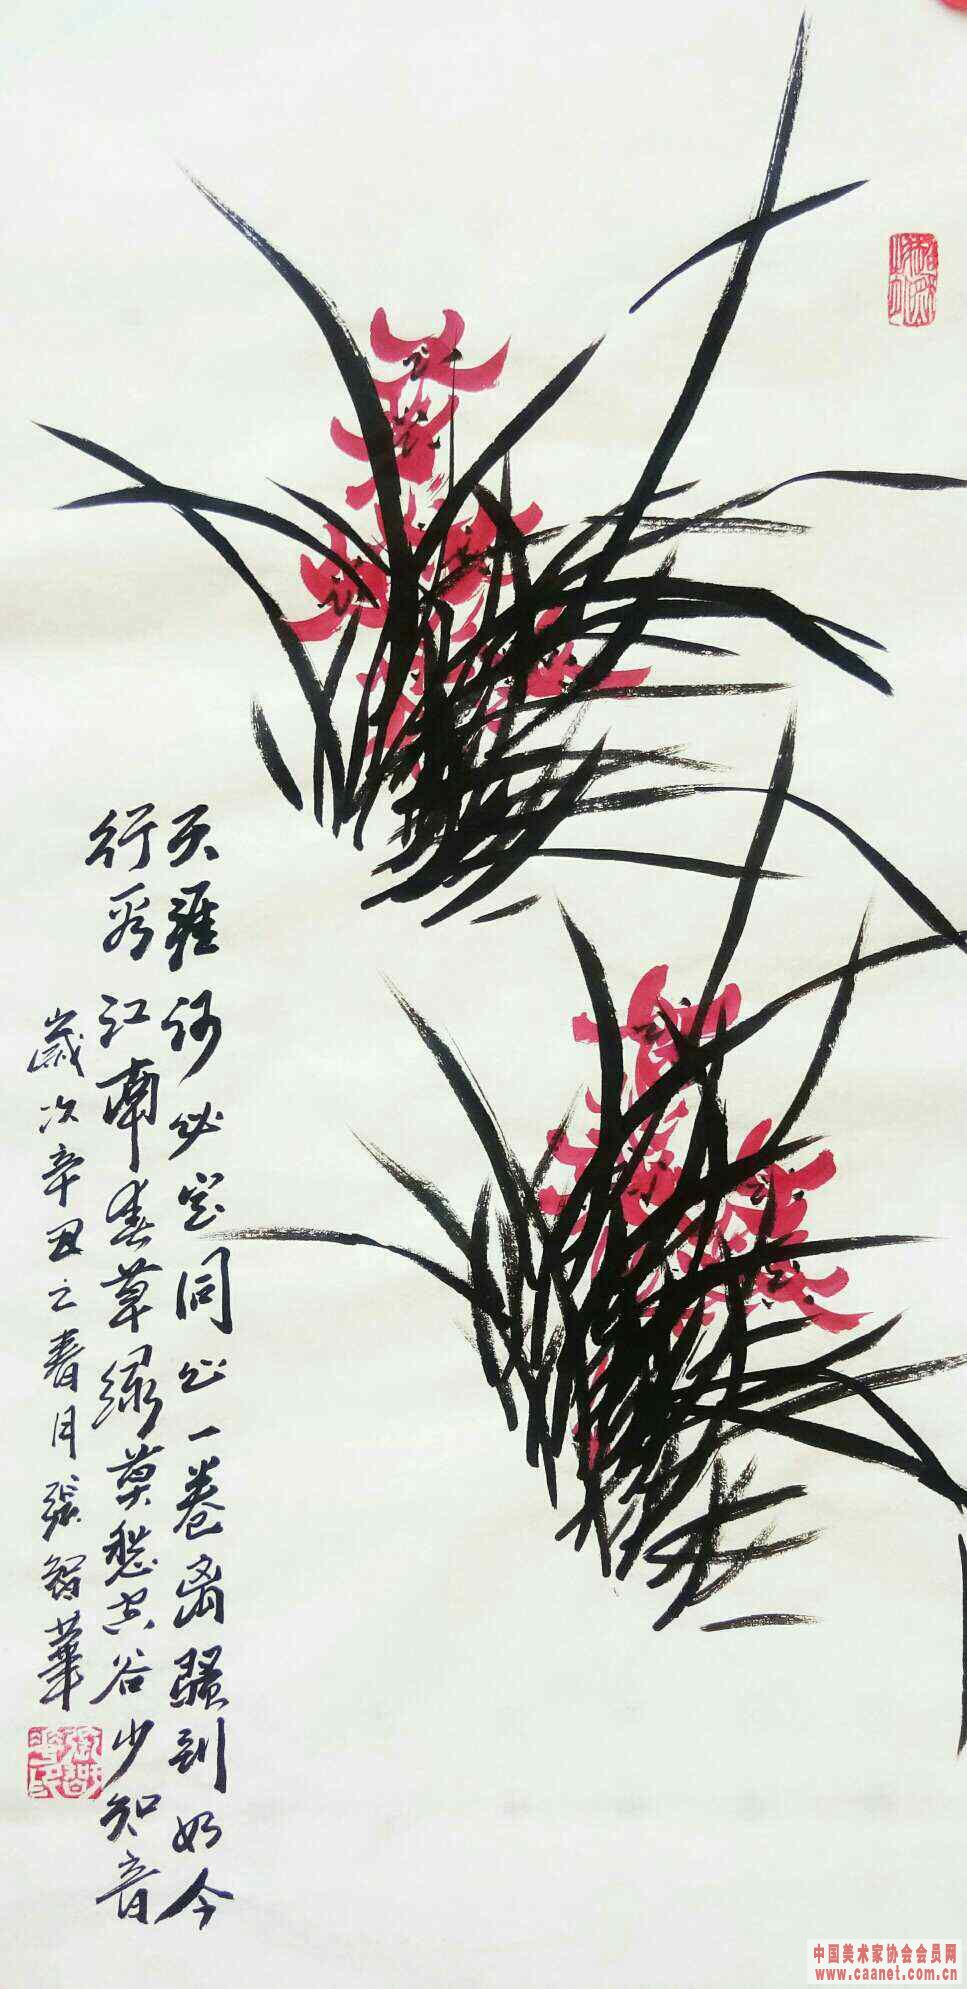 天涯何必定同心一卷离骚到如今
行看江南春草绿莫愁空谷少知音
歲次辛丑之春月張智華
中国美术家协会会员网
www.caanet.com.cn